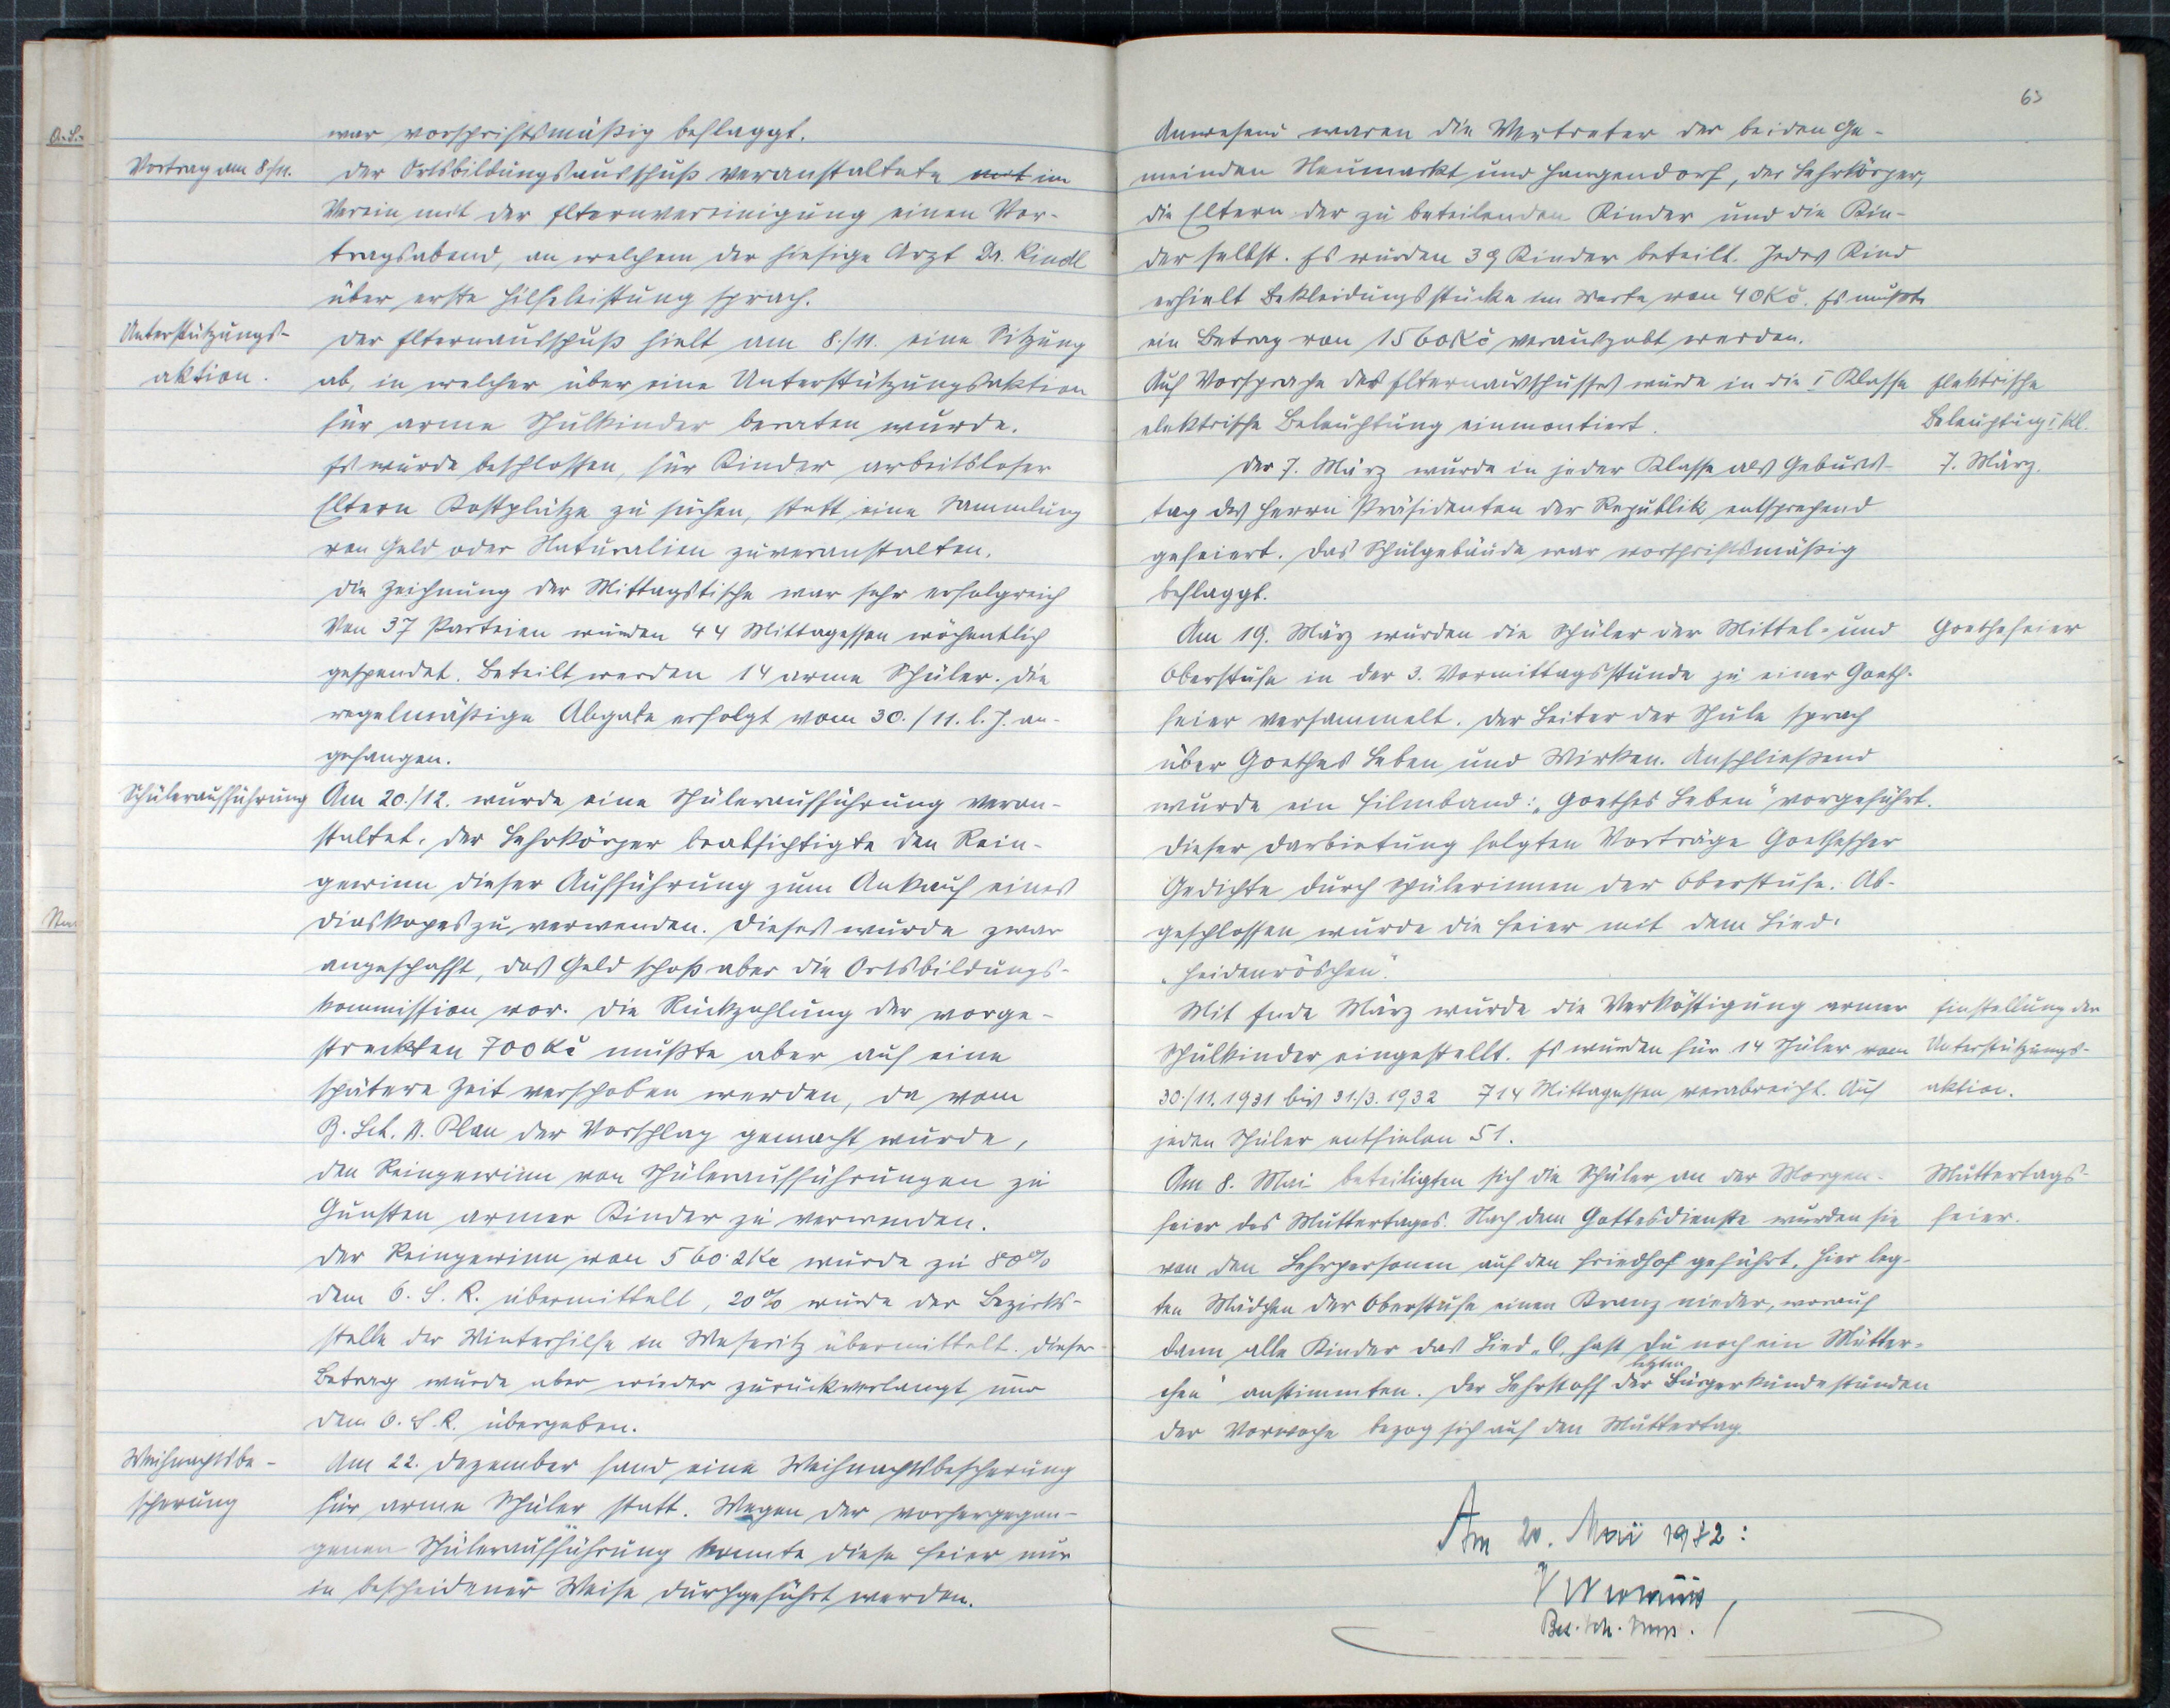 war vorschriftsmäßig beflaggt.
Vortrag am 8/11.
Der Ortsbildungsausschuß veranstaltete mit im
Verein mit der Elternvereinigung einen Vor-
tragsabend, an welchem der hiesige Arzt Dr. Kindl
über erste Hilfeleistung sprach.
Unterstützungs-
aktion.
Der Elternausschuß hielt am 8./11. eine Sitzung
ab, in welcher über eine Unterstützungsaktion
für arme Schulkinder beraten wurde.
Es wurde beschlossen, für Kinder arbeitsloser
Eltern Kostplätze zu suchen, statt eine Sammlung
von Geld oder Naturalien zuveranstalten.
Die Zeichnung der Mittagstische war sehr erfolgreich
Von 37 Parteien wurden 44 Mittagessen wöchentlich
gespendet. Beteilt werden 14 arme Schüler. Die
regelmäßige Abgabe erfolgt vom 30./11. l. J. an-
gefangen.
Schüleraufführung
Am 20./12. wurde eine Schüleraufführung veran-
staltet. Der Lehrkörper beabsichtigte den Rein-
gewinn dieser Aufführung zum Ankauf eines
Diaskopes zu verwenden. Dieses wurde zwar
angeschafft, das Geld schoß aber die Ortsbildungs-
kommission vor. Die Rückzahlung der vorge-
streckten 700 Kč mußte aber auf eine
spätere Zeit verschoben werden, da vom
B. Sch. A. Plan der Vorschlag gemacht wurde,
den Reingewinn von Schüleraufführungen zu
Gunsten armer Kinder zu verwenden.
Der Reingewinn von 560·2 Kc wurde zu 80%
dem O. S. R. übermittelt, 20% wurde der Bezirks-
stelle der Winterhilfe in Weseritz übermittelt. Dieser
Betrag wurde aber wieder zurückverlangt und
dem O. S. R. übergeben.
Weihnachtsbe-
scherung
Am 22. Dezember fand eine Weihnachtsbescherung
für arme Schüler statt. Wegen der vorhergegan-
genen Schüleraufführung konnte diese Feier nur
in bescheidener Weise durchgeführt werden.
63
Anwesend waren die Vertreter der beiden Ge-
meinden Neumarkt und Hangendorf, der Lehrkörper,
die Eltern der zu beteilenden Kinder und die Kin-
der selbst. Es wurden 39 Kinder beteilt. Jedes Kind
erhielt Bekleidungsstücke im Werte von 40 Kč. Es mußte
ein Betrag von 1560 Kč verausgabt werden.
Auf Vorsprache des Elternausschusses wurde in die I Klasse
elektrische Beleuchtung einmontiert.
Elektrische
Beleuchtung I Kl.
Der 7. März wurde in jeder Klasse als Geburts-
tag des Herrn Präsidenten der Republik entsprechend
gefeiert. Das Schulgebäude war vorschriftsmäßig
beflaggt.
7. März.
Am 19. März wurden die Schüler der Mittel- und
Oberstufe in der 3. Vormittagsstunde zu einer Goeth-
feier versammelt. Der Leiter der Schule sprach
über Goethes Leben und Wirken. Anschließend
wurde ein Filmband: „Goethes Leben" vorgeführt.
Dieser Darbietung folgten Vorträge Goethescher
Gedichte durch Schülerinnen der Oberstufe. Ab-
geschlossen wurde die Feier mit dem Lied:
„Heidenröschen".
Goethefeier
Mit Ende März wurde die Verköstigung armer
Schulkinder eingestellt. Es wurden für 14 Schüler vom
30./11. 1931 bis 31./3. 1932 714 Mittagessen verabreicht. Auf
jeden Schüler entfielen 51.
Einstellung der
Unterstützungs-
aktion.
Am 8. Mai beteiligten sich die Schüler an der Morgen-
feier des Muttertages. Nach dem Gottesdienste wurden sie
von den Lehrpersonen auf den Friedhof geführt. Hier leg-
ten Mädchen der Oberstufe einen Kranz nieder, worauf
dann alle Kinder das Lied „O, hast du noch ein Mütter-
chen" anstimmten. Der Lehrstoff der letzten Bürgerkundestunden
der Vorwoche bezog sich auf den Muttertag.
Muttertags-
feier.
Am 20. Mai 1932: